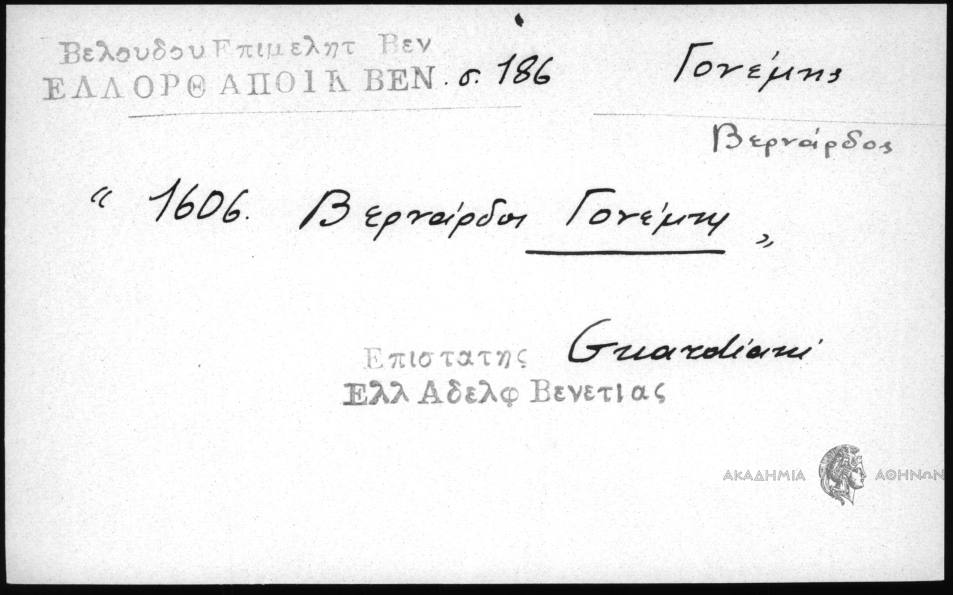 Βελουδου Επιμελητ Βεν
ΕΛΛΟΡΘ ΑΠΟΙΚ ΒΕΝ. σ. 186
Γονέμης
Βερνάρδος
“ 1606. Βερνάρδος Γονέμης „
Επιστατης Guardiani
Ελλ Αδελφ Βενετιας
ΑΚΑΔΗΜΙΑ ΑΘΗΝΩΝ